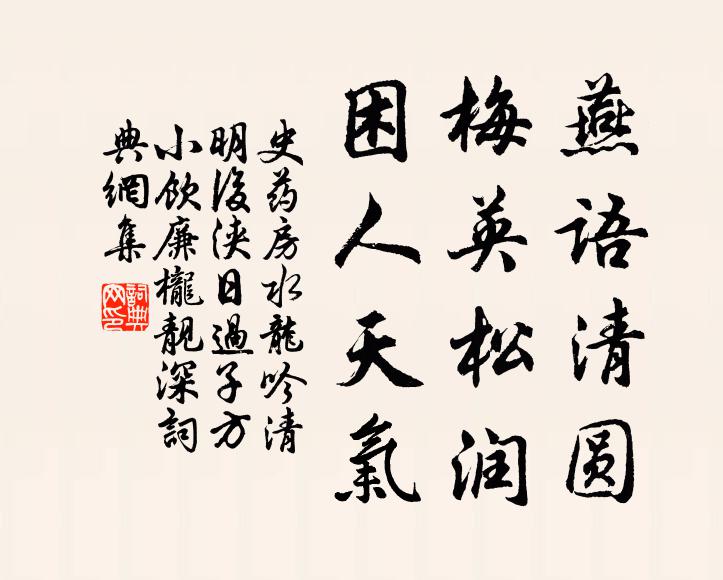 燕語清圆
梅英松润
困人天氣
史药房水龍吟清
明後浃日過子方
小飲廉櫳靚深詞
典網集
詞典
网印